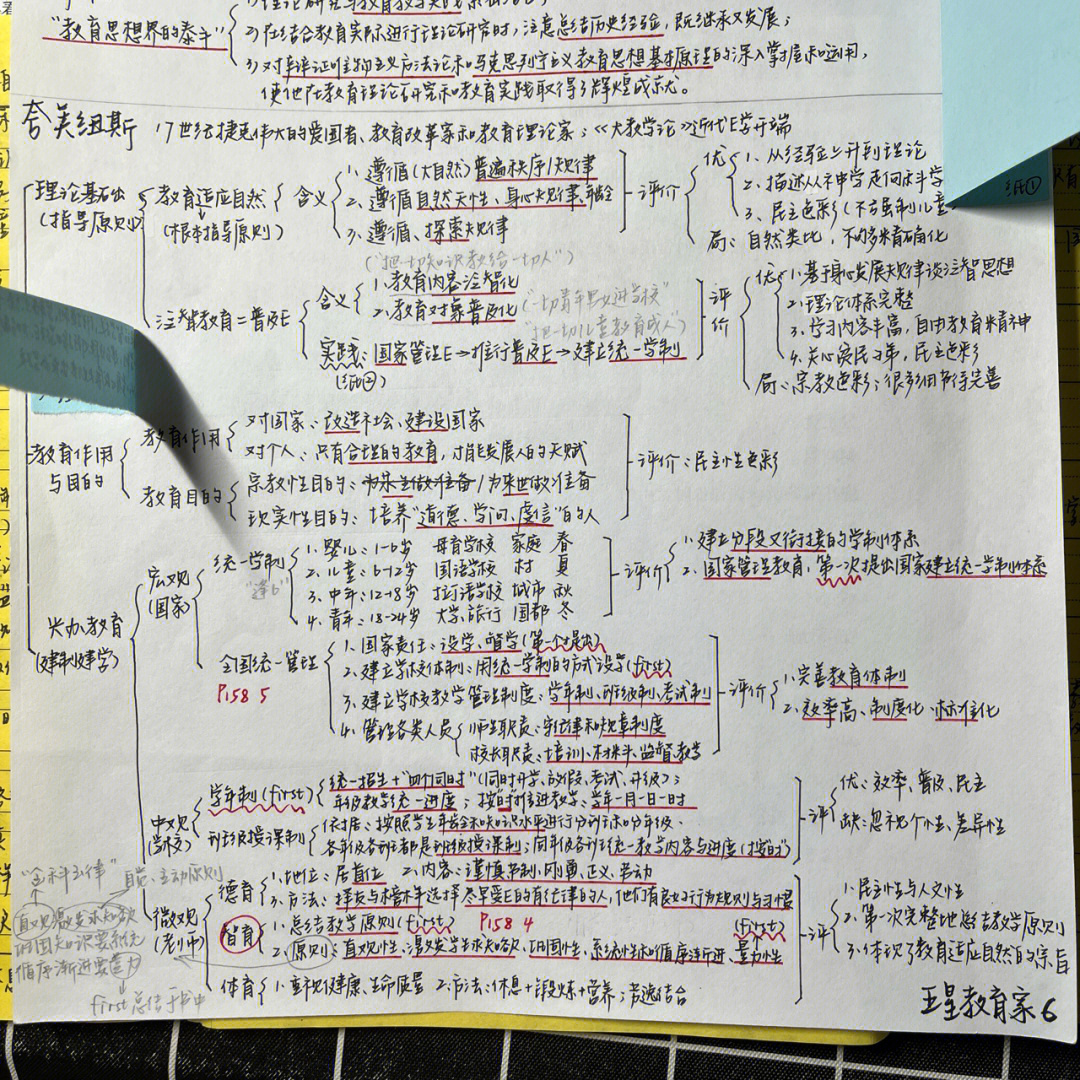 "教育思想界的泰斗"
2)在结合教育实际进行理论研究时,注意总结历史经验,既继承又发展;
3)对辩证唯物主义方法论和马克思列宁主义教育思想基本原理的深入掌握和运用,
使他在教育理论研究和教育实践取得了辉煌成就。
夸美纽斯 17世纪捷克伟大的爱国者、教育改革家和教育理论家;《大教学论》近代E学开端
理论基础(指导原则)
教育适应自然(根本指导原则)
含义
1.遵循(大自然)普遍秩序/规律
2.遵循自然天性、身心规律、年龄
3.遵循、探索规律
评价
优 1、从经验上升到理论
2、描述从神学走向科学
3、民主色彩(不高强制儿童
局:自然类比,不够
纸①
("把一切知识教给一切人")
泛智教育=普及E
含义
1.教育内容泛智化
2.教育对象普及化
("一切青年男女进学校"
"把一切儿童教育成人")
实践:国家管理E→推行普及E→建立统一学制
(纸②)
评价
优 1.基于身心发展规律谈泛智思想
2.理论体系完整
3.学习内容丰富,自由教育精神
4.关心贫民子弟,民主色彩
局:宗教色彩;很多细节待完善
教育作用与目的
教育作用
对国家:改造社会、建设国家
对个人:只有合理的教育,才能发展人的天赋
教育目的
宗教性目的:/为来世做准备
现实性目的:培养"道德、学问、虔信"的人
评价:民主性色彩
兴办教育(建制建学)
宏观(国家)
统一学制
"逢6"
1.婴儿:1-6岁 母育学校 家庭 春
2.儿童:6-12岁 国语学校 村 夏
3.中年:12-18岁 拉丁语学校 城市 秋
4.青年:18-24岁 大学、旅行 国都 冬
评价
1.建立分段又衔接的学制体系
2.国家管理教育,第一次提出国家建立统一学制体系
全国统一管理
P158 5
1.国家责任:设学、督学(第一个提出)
2.建立学校体制:用统一学制的方式设学(first)
3.建立学校教学管理制度:学年制、班级制、考试制
4.管理各类人员
师生职责:守法律和规章制度
校长职责:培训、材料、监督教学
评价
1.完善教育体制
2.效率高、制度化、标准化
中观(学校)
学年制(first)
统一招生+"四个同时"(同时开学、放假、考试、升级);
年级教学统一进度;按"时"推进教学:学年-月-日-时
班级授课制
依据:按照学生年龄和知识水平进行分班和分年级、
各年级各班都是班级授课制;同年级各班统一教学内容与进度(按"时")
评
优:效率、普及、民主
缺:忽视个性、差异性
微观(老师)
德育
1.地位:居首位 2.内容:谨慎节制、刚勇、正义、劳动
智育
1.总结教学原则(first) P158 4 (first)
2.原则:直观性、激发学生求知欲、巩固性、系统性和循序渐进、量力性
体育
1.重视健康、生命质量 2.方法:休息+锻炼+营养;劳逸结合
评
1.民主性与人文性
2.第一次完整地总结教学原则
3.体现了教育适应自然的宗旨
自觉、主动原则
直观激发求知欲
巩固知识要系统
循序渐进要量力
first总结于书中
五星教育家 6